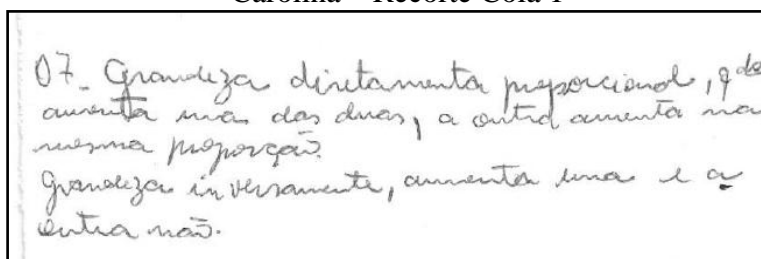 Carolina – Recorte Cola 1
07- Grandeza diretamenta proporcional, qdo
aumenta uma das duas, a outra aumenta na
mesma proporção.
Grandeza inversamente, aumenta uma e a
outra não.